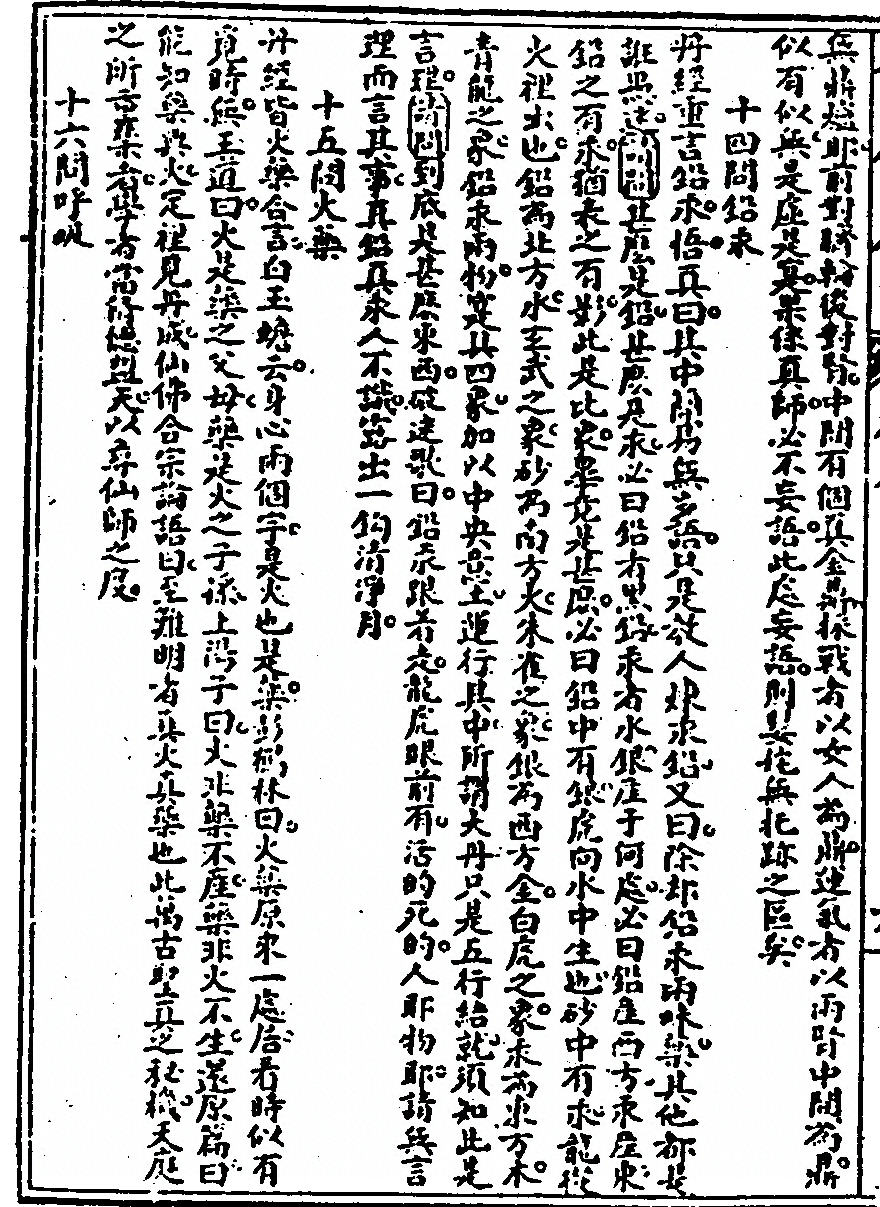 無鼎爐耶前對臍輪後對腎中間有個真金鼎採戰者以女人為鼎運氣者以兩腎中間為鼎
似有似無是虛是寔果係真師必不妄語此處妄語則裝無把跡之區矣
十四問鉛汞
丹經重言鉛汞悟真曰其中簡易無多語只是教人煉汞鉛又曰除却鉛汞兩味藥其他都是
誑愚迷請問甚麼是鉛甚麼是汞必曰鉛有黑鉛汞有水銀產于何處必曰鉛產西方汞產東
鉛之有汞猶表之有影此是比象畢竟是甚麼必曰鉛中有銀虎向水中生也砂中有汞龍從
火裡出也鉛為北方水玄武之象砂為南方火朱雀之象銀為西方金白虎之象汞為東方木
青龍之象鉛汞兩物寔具四象加以中央意土運行其中所謂大丹只是五行結就須知此是
言理請問到底是甚麼東西破迷歌曰鉛汞跟着走龍虎眼前有活的死的人耶物耶請無言
理而言其事真鉛真汞人不識露出一鈎清淨月
十五問火藥
丹經皆火藥合言白玉蟾云身心兩個字是火也是藥彭鶴林曰火藥原來一處居看時似有
覓時無玉道曰火是藥之父母藥是火之子孫上陽子曰火非藥不產藥非火不生還原篇曰
能知藥與火定裡見丹成仙佛合宗論語曰至難明者真火真藥也此萬古聖真之秘機天庭
之所言棄者學者當修德盟天以尋仙師之度
十六問呼吸